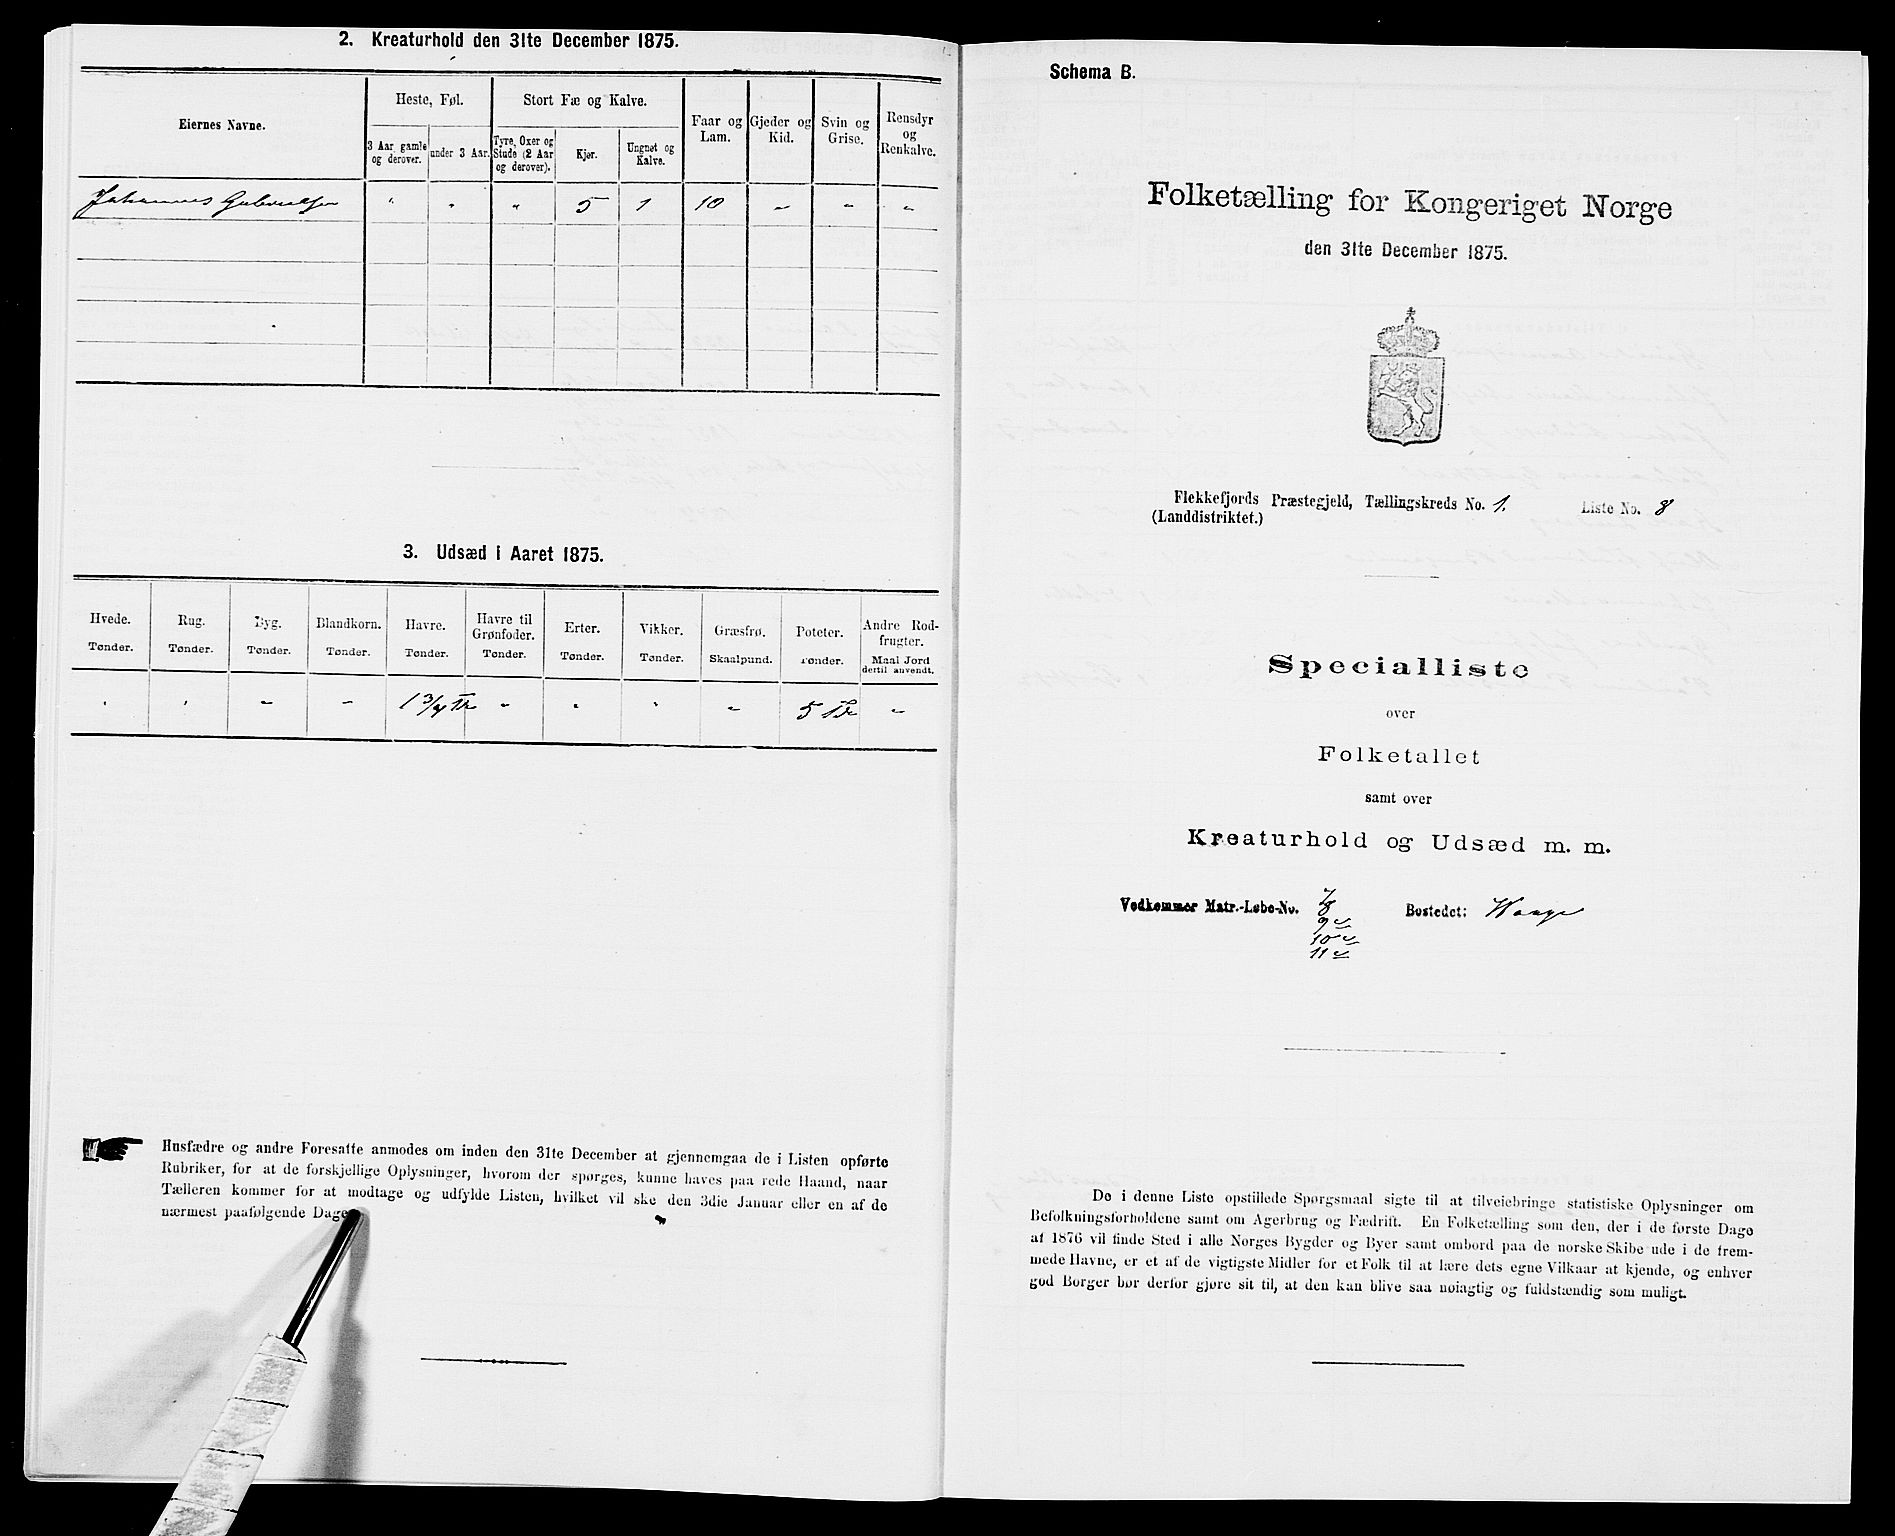 2. Kreaturhold den 31te December 1875.
Eiernes Navne.
Heste, Føl.
Stort Fæ og Kalve.
Faar og Lam.
Gjeder og Kid.
Svin og Grise.
Rensdyr og Renkalve.
3 Aar gamle og derover.
under 3 Aar.
Tyre, Oxer og Stude (2 Aar og derover).
Kjør.
Ungnøt og Kalve.
Johannes " " " 5 1 10 " " "
3. Udsæd i Aaret 1875.
Hvede. Rug. Byg. Blandkorn. Havre. Havre til Grønfoder. Erter. Vikker. Græsfrø. Poteter. Andre Rodfrugter.
Tønder. Tønder. Tønder. Tønder. Tønder. Tønder. Tønder. Tønder. Skaalpund. Tønder. Maal Jord dertil anvendt.
" " " " 1 3/4 " " " " 5 "
Husfædre og andre Foresatte anmodes om inden den 31te December at gjennemgaa de i Listen opførte
Rubriker, for at de forskjellige Oplysninger, hvorom der spørges, kunne haves paa rede Haand, naar
Tælleren kommer for at modtage og udfylde Listen, hvilket vil ske den 3die Januar eller en af de
nærmest paafølgende Dage
Schema B.
Folketælling for Kongeriget Norge
den 31te December 1875.
Flekkefjords Præstegjeld, Tællingskreds No. 1. Liste No. 8
(Landdistriktet.)
Specialliste
over
Folketallet
samt over
Kreaturhold og Udsæd m. m.
Vedkommer Matr.-Løbe-No. 8 Bostedet: Waage
9
10
11
De i denne Liste opstillede Spørgsmaal sigte til at tilveiebringe statistiske Oplysninger om
Befolkningsforholdene samt om Agerbrug og Fædrift. En Folketælling som den, der i de første Dage
af 1876 vil finde Sted i alle Norges Bygder og Byer samt ombord paa de norske Skibe ude i de frem-
mede Havne, er et af de vigtigste Midler for et Folk til at lære dets egne Vilkaar at kjende, og enhver
god Borger bør derfor gjøre sit til, at den kan blive saa nøiagtig og fuldstændig som muligt.